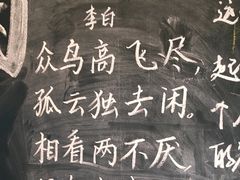 李白
众鸟高飞尽，
孤云独去闲。
相看两不厌
这
起
个